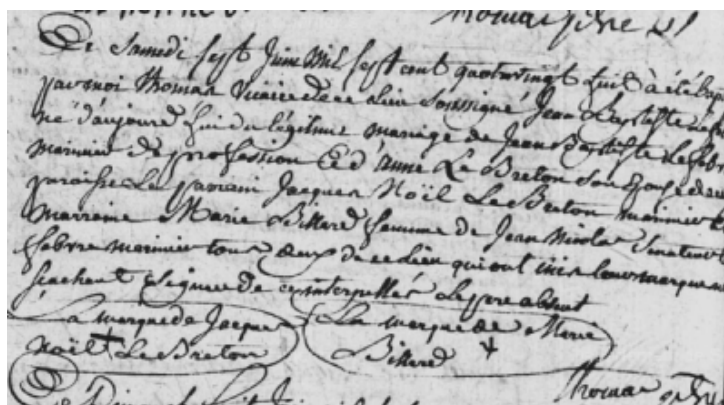 Thomas ptre
Le Samedi sept Juin Mil sept cent quatrevingt huit à été bap
par moi Thomas Vicaire de ce lieu soussigné Jean Baptiste
né d'aujourd hui du légitime mariage de Jean Baptiste Lefebv
marinier de profession et d'anne Le Breton son epouse de
paroisse Le parrain Jacques Noël Le Breton marinier
marraine Marie Billard femme de Jean Nicolas
febvre marinier tous deux de ce lieu qui ont mis leurs marques
scachant signer de ce interpellés Le pere absent
La marque de Jacques La marque de Marie
Noël Le Breton Billard
Thomas